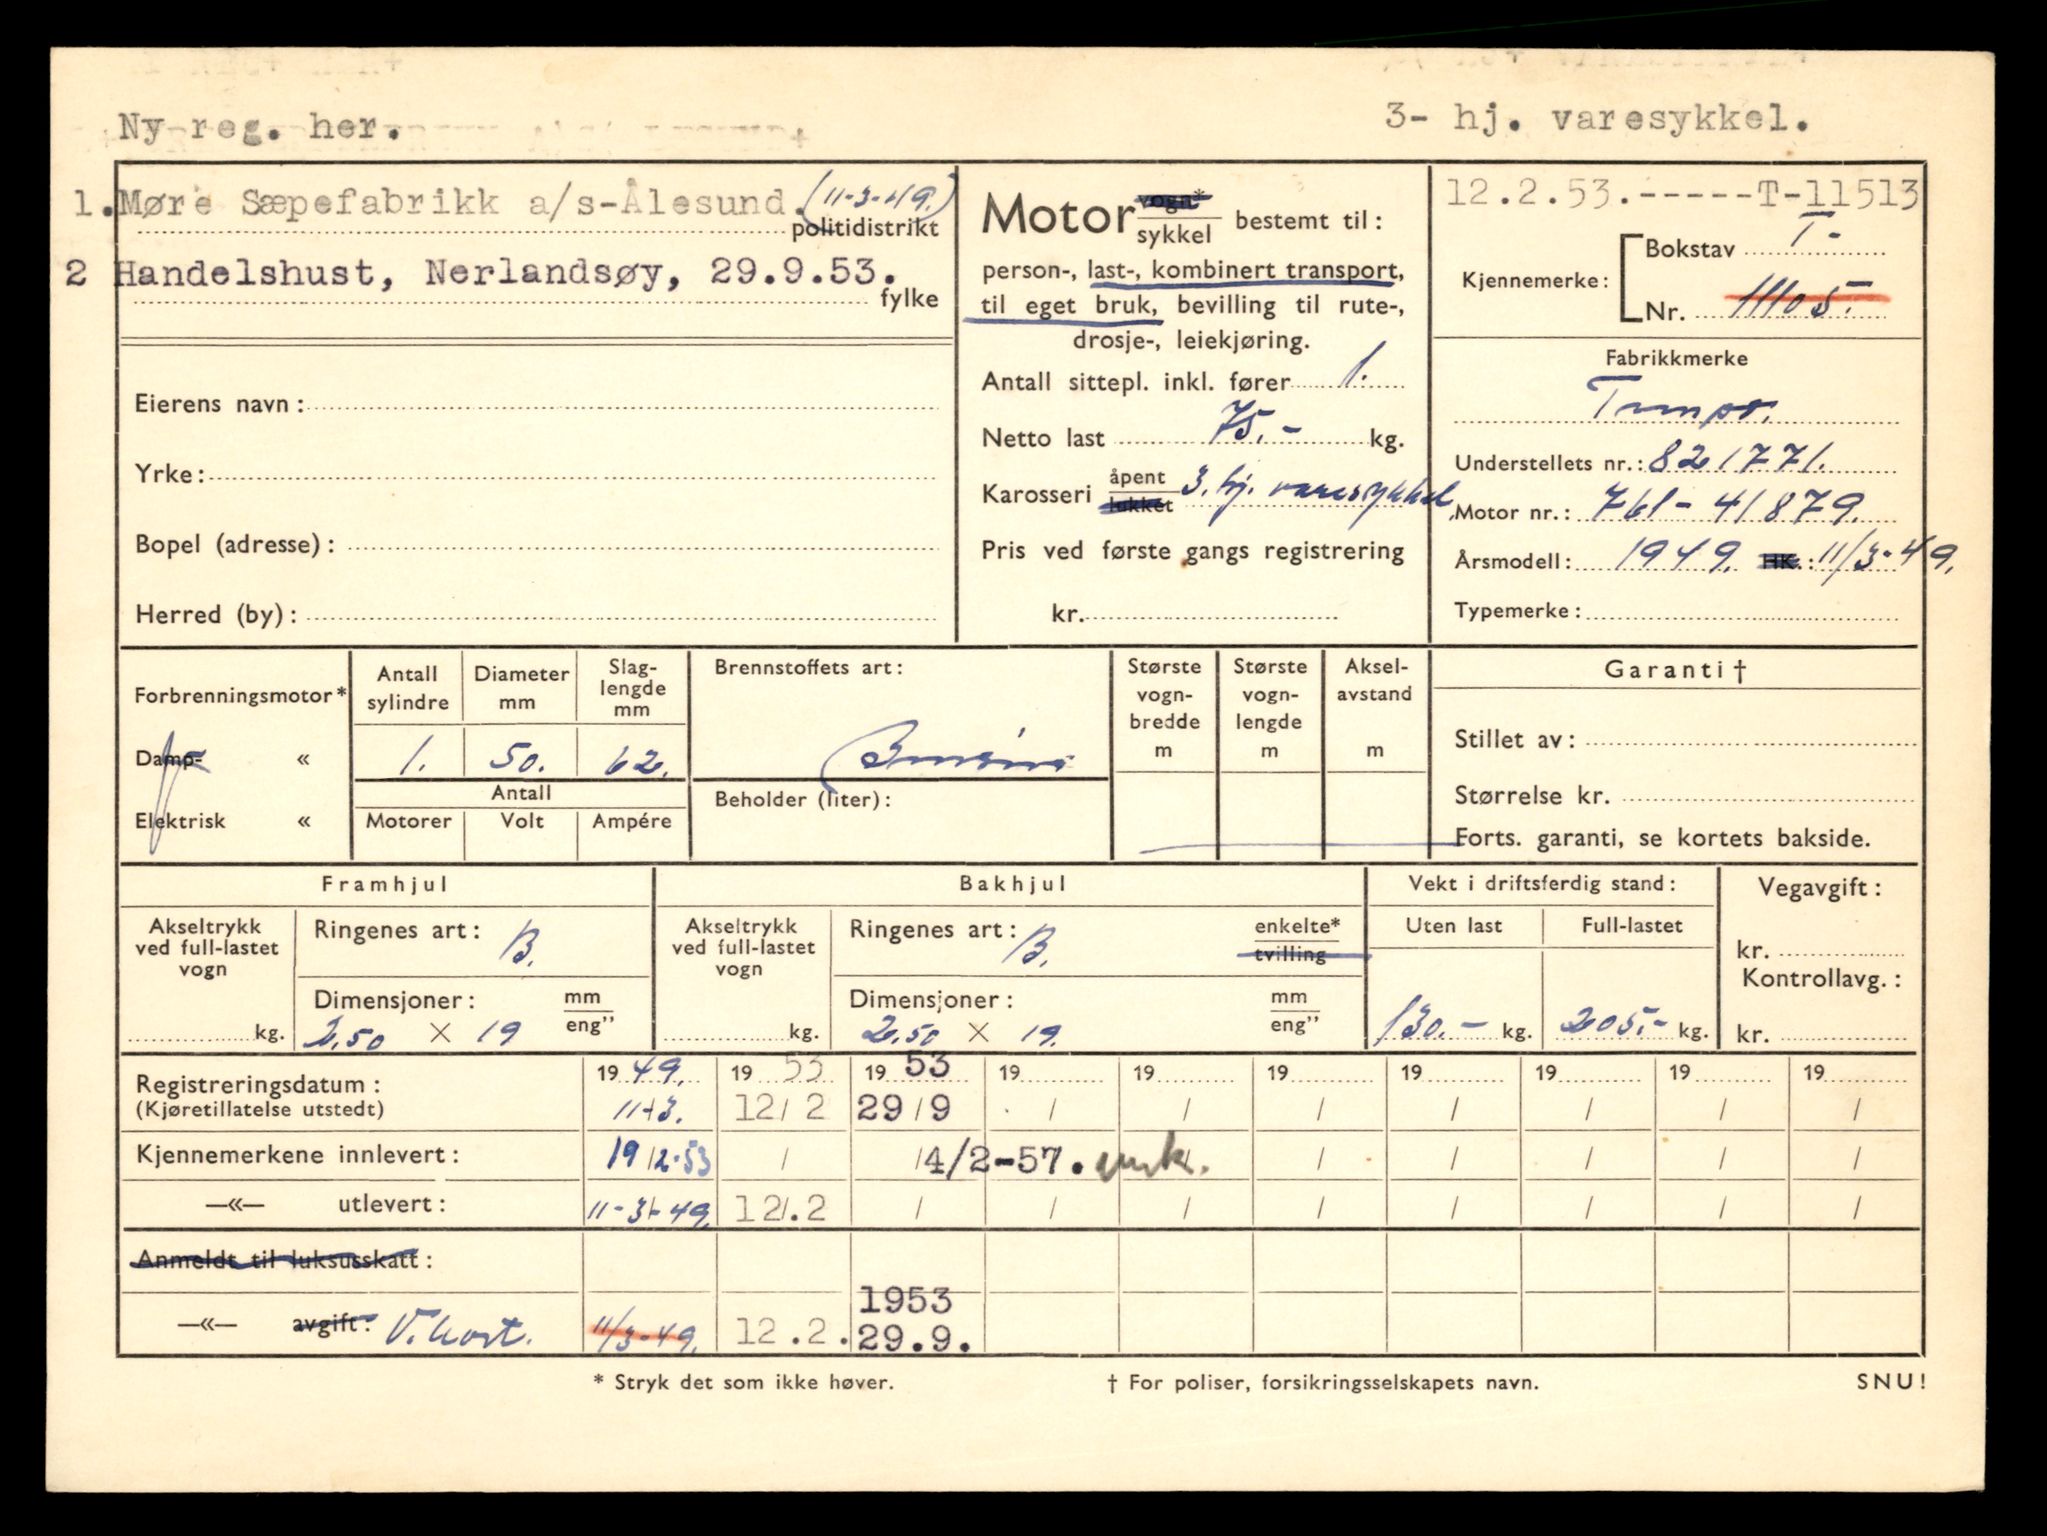 Ny reg. her.
3- hj. varesykkel.
1. Møre Sæpefabrikk a/s-Ålesund. (11-3-49.)
politidistrikt
2 Handelshust, Nerlandsøy, 29.9.53.
fylke
Eierens navn:
Yrke:
Bopel (adresse):
Herred (by):
Motor vogn* sykkel bestemt til:
person-, last-, kombinert transport,
til eget bruk, bevilling til rute-,
drosje-, leiekjøring.
Antall sittepl. inkl. fører 1.
Netto last 75.- kg.
Karosseri åpent lukket 3. hj. varesykkel
Pris ved første gangs registrering
kr.
12.2.53.-----T-11513
Kjennemerke: Bokstav T-
Nr. 11105.-
Fabrikkmerke
Tempo.
Understellets nr.: 821771.
Motor nr.: 761-41879.
Årsmodell: 1949. HK.: 11/3-49.
Typemerke:
Forbrenningsmotor*
Damp- «
Elektrisk «
Antall sylindre 1.
Diameter mm 50.
Slag-lengde mm 62.
Antall
Motorer Volt Ampére
Brennstoffets art:
Bensin
Beholder (liter):
Største vogn-bredde m
Største vogn-lengde m
Aksel-avstand m
Garanti †
Stillet av:
Størrelse kr.
Forts. garanti, se kortets bakside.
Framhjul
Akseltrykk ved full-lastet vogn
kg.
Ringenes art: B.
Dimensjoner: mm eng”
2.50 × 19
Bakhjul
Akseltrykk ved full-lastet vogn
kg.
Ringenes art: B. enkelte* tvilling
Dimensjoner: mm eng”
2.50 × 19.
Vekt i driftsferdig stand:
Uten last Full-lastet
130.- kg. 205.- kg.
Vegavgift:
kr.
Kontrollavg.:
kr.
Registreringsdatum: 19 49. 19 53 19 53 19 19 19 19 19 19 19
(Kjøretillatelse utstedt) 11/3. 12/2 29/9 / / / / / / /
Kjennemerkene innlevert: 19/2-53 / / 4/2-57. / / / / /
—«— utlevert: 11-3-49. 12/.2 / / / / / / / /
Anmeldt til luksusskatt:
—«— avgift: V.kort. 11/3-49. 12.2. 1953 29.9.
* Stryk det som ikke høver.
† For poliser, forsikringsselskapets navn.
SNU!